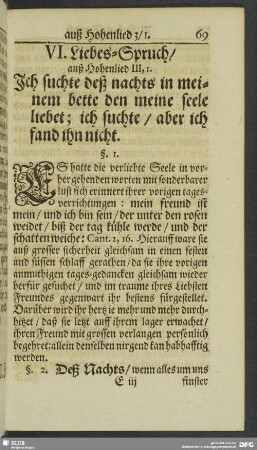 auß Hohenlied 3/1. 69
VI. Liebes-Spruch/
auß Hohenlied III, 1.
Ich suchte deß nachts in mei-
nem bette den meine seele
liebet; ich suchte / aber ich
fand ihn nicht.
§. 1.
ES hatte die verliebte Seele in vor-
her gehenden worten mit sonderbarer
lust sich erinnert ihrer vorigen tages-
verrichtungen: mein freund ist
mein/ und ich bin sein/ der unter den rosen
weidet/ biß der tag kühle werde/ und der
schatten weiche: Cant. 2, 16. Hierauff ware sie
auß grosser sicherheit gleichsam in einen festen
und süssen schlaff gerathen/ da sie ihre vorigen
anmuthigen tages-gedancken gleichsam wieder
herfür gesuchet/ und im traume ihres Liebsten
Freundes gegenwart ihr bestens fürgestellet.
Darüber wird ihr hertz ie mehr und mehr durch-
hitzet/ daß sie letzt auff ihrem lager erwachet/
ihren Freund mit grossen verlangen persönlich
begehret: allein denselben nirgend kan habhafftig
werden.
§. 2. Deß Nachts/ wenn alles um uns
E iij finster
SLUB